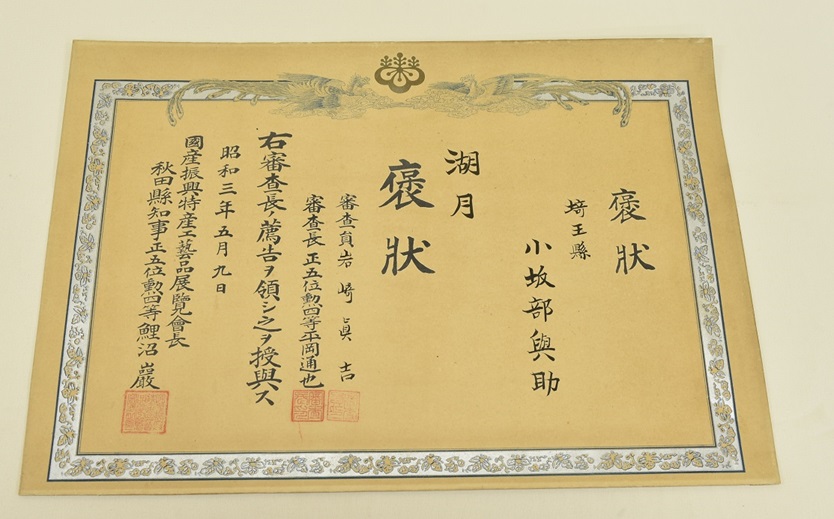 褒狀
埼玉縣
小坂部與助
湖月
褒狀
審查員岩崎眞吉
審查長正五位勲四等平岡通也
右審查長ノ薦告ヲ領シ之ヲ授與ス
昭和三年五月九日
國產振興特產工藝品展覽會長
秋田縣知事正五位勲四等鯉沼巖